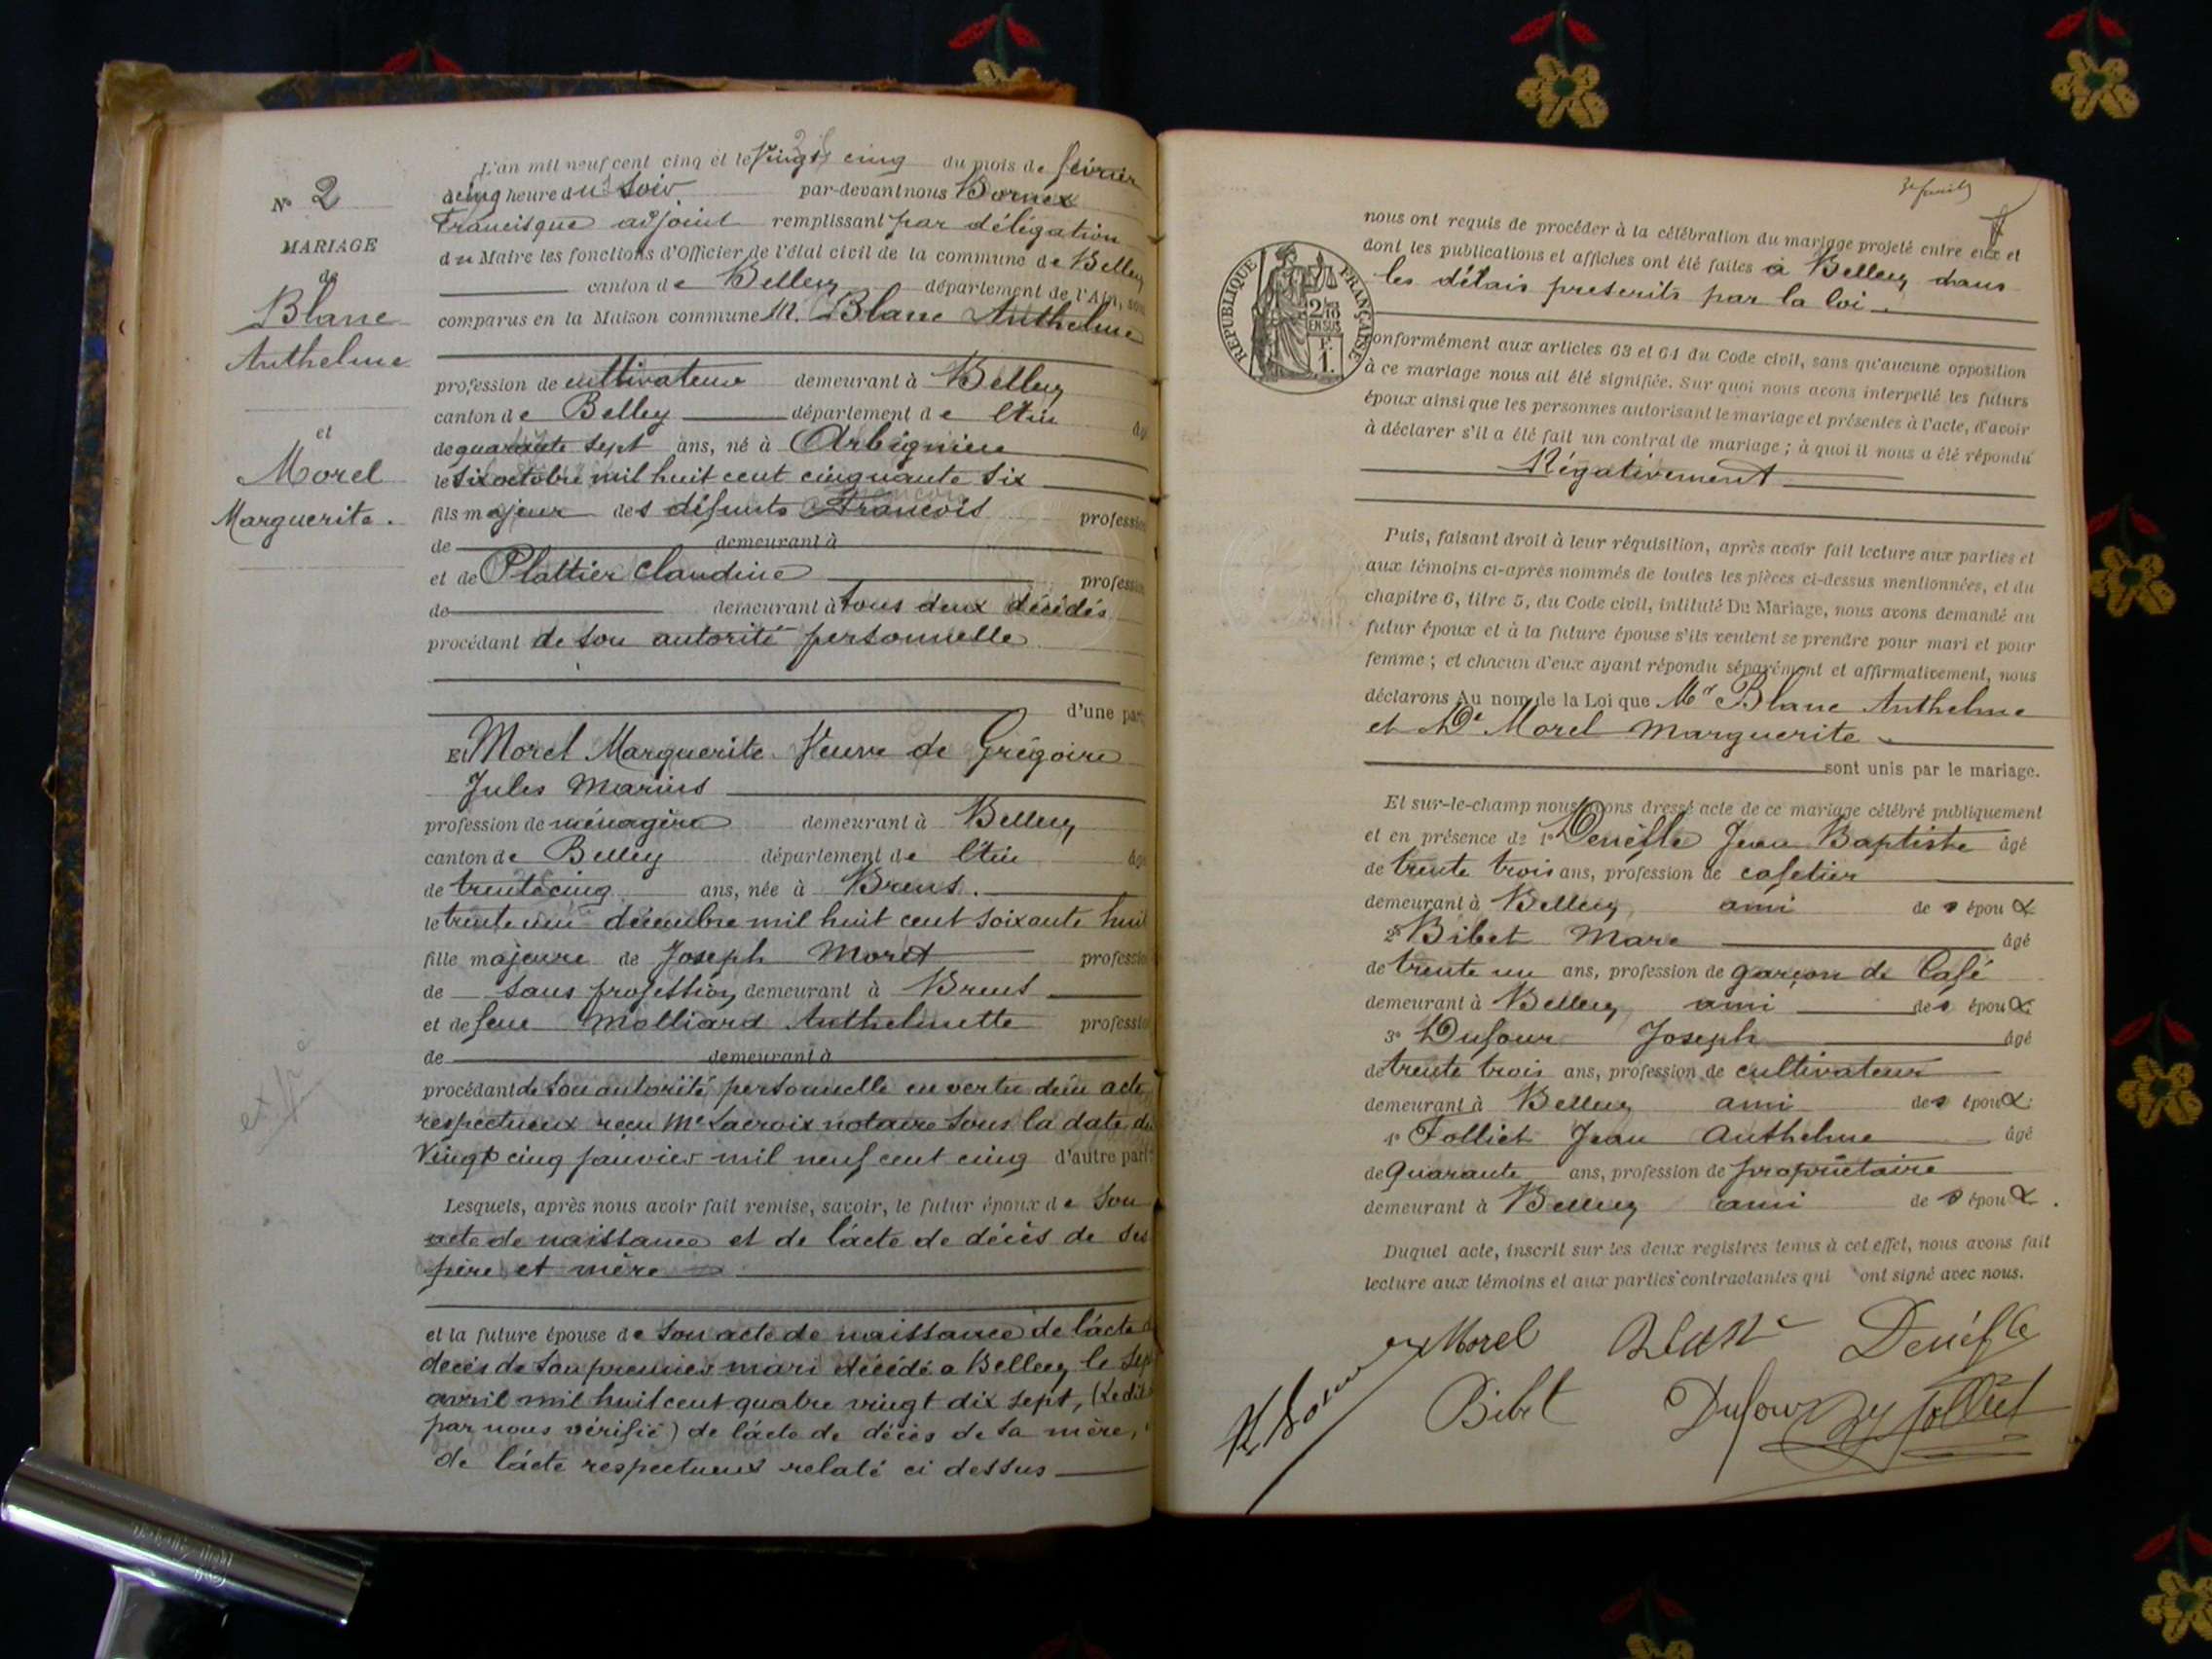 N° 2
MARIAGE
de
Blanc
Anthelme
et
Morel
Marguerite.
L'an mil neuf cent cinq et le Vingt cinq du mois de février
à cinq heure du soir par-devant nous Bornex
Francisque adjoint remplissant par délégation
du Maire les fonctions d'Officier de l'état civil de la commune de Belley
canton de Belley département de l'Ain, sont
comparus en la Maison commune M. Blanc Anthelme
profession de cultivateur demeurant à Belley
canton de Belley département de l'Ain âgé
de quarante sept ans, né à Arbignieu
le six octobre mil huit cent cinquante six
fils majeur des défunts François profession
de demeurant à
et de Plattier Claudine profession
de demeurant à tous deux décédés
procédant de son autorité personnelle
d'une part
Et Morel Marguerite Veuve de Grégoire
Jules Marius
profession de ménagère demeurant à Belley
canton de Belley département de l'Ain âgé
de trente cinq ans, née à Brens.
le trente un décembre mil huit cent soixante huit
fille majeure de Joseph Morel profession
de sans profession demeurant à Brens
et de feue Molliard Anthelmette profession
de demeurant à
procédant de son autorité personnelle en vertu d'un acte
respectueux reçu Me Lacroix notaire sous la date du
Vingt cinq janvier mil neuf cent cinq d'autre part
Lesquels, après nous avoir fait remise, savoir, le futur époux de son
acte de naissance et de l'acte de décès de ses
père et mère
et la future épouse de son acte de naissance de l'acte de
décès de son premier mari décédé à Belley le sept
avril mil huit cent quatre vingt dix sept, (Ledit
par nous vérifié) de l'acte de décès de sa mère,
de l'acte respectueux relaté ci dessus
nous ont requis de procéder à la célébration du mariage projeté entre eux et
dont les publications et affiches ont été faites à Belley dans
les délais prescrits par la loi.
REPUBLIQUE FRANÇAISE
2/10
EN SUS
1F.
conformément aux articles 63 et 64 du Code civil, sans qu'aucune opposition
à ce mariage nous ait été signifiée. Sur quoi nous avons interpellé les futurs
époux ainsi que les personnes autorisant le mariage et présentes à l'acte, d'avoir
à déclarer s'il a été fait un contrat de mariage ; à quoi il nous a été répondu
Négativement
Puis, faisant droit à leur réquisition, après avoir fait lecture aux parties et
aux témoins ci-après nommés de toutes les pièces ci-dessus mentionnées, et du
chapitre 6, titre 5, du Code civil, intitulé Du Mariage, nous avons demandé au
futur époux et à la future épouse s'ils veulent se prendre pour mari et pour
femme ; et chacun d'eux ayant répondu séparément et affirmativement, nous
déclarons Au nom de la Loi que Mr Blanc Anthelme
et De Morel Marguerite
sont unis par le mariage.
Et sur-le-champ nous avons dressé acte de ce mariage célébré publiquement
et en présence de 1° Denèfle Jean Baptiste âgé
de trente trois ans, profession de cafetier
demeurant à Belley ami des époux
2° Bibet Marc âgé
de trente un ans, profession de garçon de Café
demeurant à Belley ami des époux
3° Dufour Joseph âgé
de trente trois ans, profession de cultivateur
demeurant à Belley ami des époux
4° Folliet Jean Anthelme âgé
de Quarante ans, profession de propriétaire
demeurant à Belley ami des époux.
Duquel acte, inscrit sur les deux registres tenus à cet effet, nous avons fait
lecture aux témoins et aux parties contractantes qui ont signé avec nous.
Morel Blanc Denèfle
Bibet Dufour Folliet